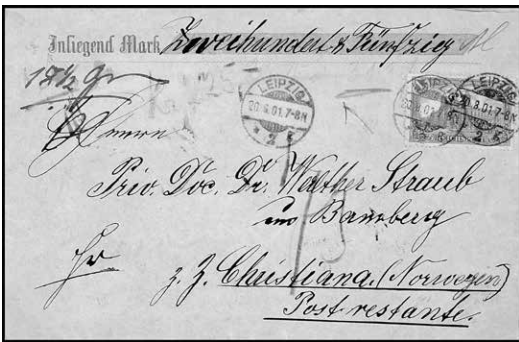 Inliegend Mark Zweihundert & Fünfzig M
18½ gr
LEIPZIG
20.6.01.7-8N
* 2 f
LEIPZIG
20.6.01.7-8N
2 f
Herrn
Priv. Doc. Dr. Walther Straub
Bamberg
z. Z. Christiana. (Norwegen)
Post restante.